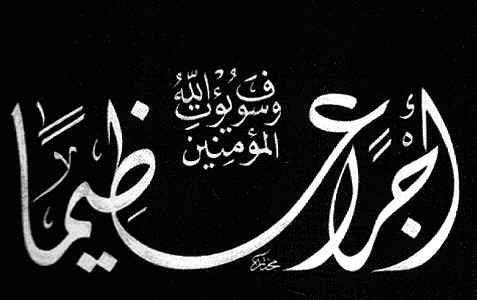 وَسَوْفَ يُؤْتِ اللّٰهُ
المُؤمِنِين
أَجْرًا عَظِيمًا